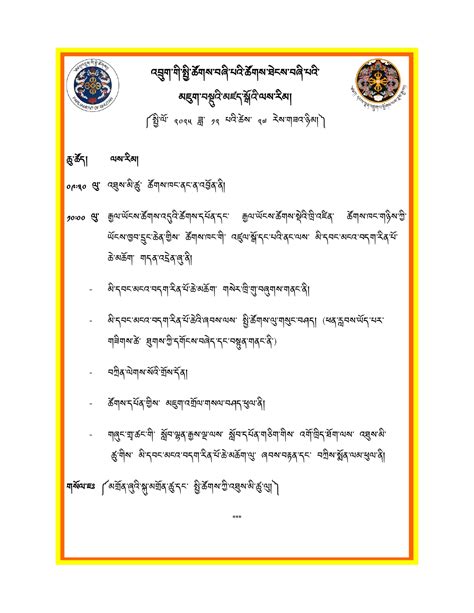 འབྲུག་གི་སྤྱི་ཚོགས་བཞི་པའི་ཚོགས་ཐེངས་བཞི་པའི་
མཇུག་བསྡུའི་མཛད་སྒོའི་ལས་རིམ།
༼སྤྱི་ལོ་ ༢༠༢༥ ཟླ་ ༡༢ པའི་ཚེས་ ༢༧ རེས་གཟའ་ཉིམ༽
ཆུ་ཚོད། ལས་རིམ།
༠༩:༣༠ ལུ་ འཐུས་མི་ཚུ་ ཚོགས་ཁང་ནང་ན་འབྱོན་ནི།
༡༠:༠༠ ལུ་ རྒྱལ་ཡོངས་ཚོགས་འདུའི་ཚོགས་དཔོན་དང་ རྒྱལ་ཡོངས་ཚོགས་སྡེའི་ཁྲི་འཛིན་ ཚོགས་ཁང་གཉིས་ཀྱི་
ཡོངས་ཁྱབ་དྲུང་ཆེན་གྱིས་ ཚོགས་ཁང་གི་ འཛུལ་སྒོ་དང་པའི་ནང་ལས་ མི་དབང་མངའ་བདག་རིན་པོ་
ཆེ་མཆོག་ གདན་འདྲེན་ཞུ་ནི།
- མི་དབང་མངའ་བདག་རིན་པོ་ཆེ་མཆོག་ གསེར་ཁྲི་གུ་བཞུགས་གནང་ནི།
- མི་དབང་མངའ་བདག་རིན་པོ་ཆེའི་ཞབས་ལས་ སྤྱི་ཚོགས་ལུ་གསུང་བཤད། (ཕན་རླབས་ཡོད་པར་
གཟིགས་ཚེ་ ཐུགས་ཀྱི་དགོངས་བཞེད་དང་བསྟུན་གནང་ནི་)
- བཀྲིན་ལེགས་སོའི་གྲོས་དོན།
- ཚོགས་དཔོན་གྱིས་ མཇུག་འགྲོལ་གསལ་བཤད་ཕུལ་ནི།
- གཞུང་གྲྭ་ཚང་གི་ སློབ་ལྷན་རྒྱས་ལྔ་ལས་ སློབ་དཔོན་གཅིག་གིས་ འགོ་ཁྲིད་ཐོག་ལས་ འཐུས་མི་
ཚུ་གིས་ མི་དབང་མངའ་བདག་རིན་པོ་ཆེ་མཆོག་ལུ་ ཞབས་བརྟན་དང་ བཀྲིས་སྨོན་ལམ་ཕུལ་ནི།
གསོལ་ཇ༔ ༼མགྲོན་ཞུའི་སྐུ་མགྲོན་ཚུ་དང་ སྤྱི་ཚོགས་ཀྱི་འཐུས་མི་ཚུ་ལུ༽
***